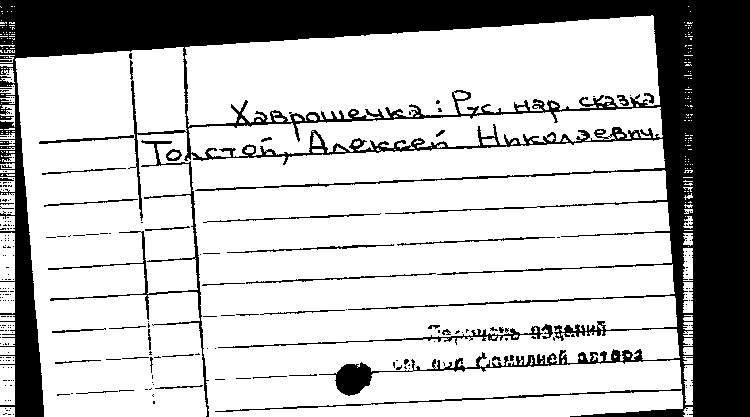 Хаврошечка : Рус. нар. сказка
Толстой, Алексей Николаевич.
Перечень изданий
см. под фамилией автора